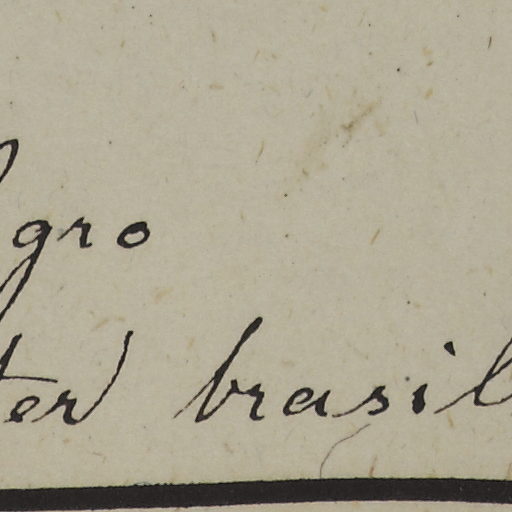 gro
ter brasil